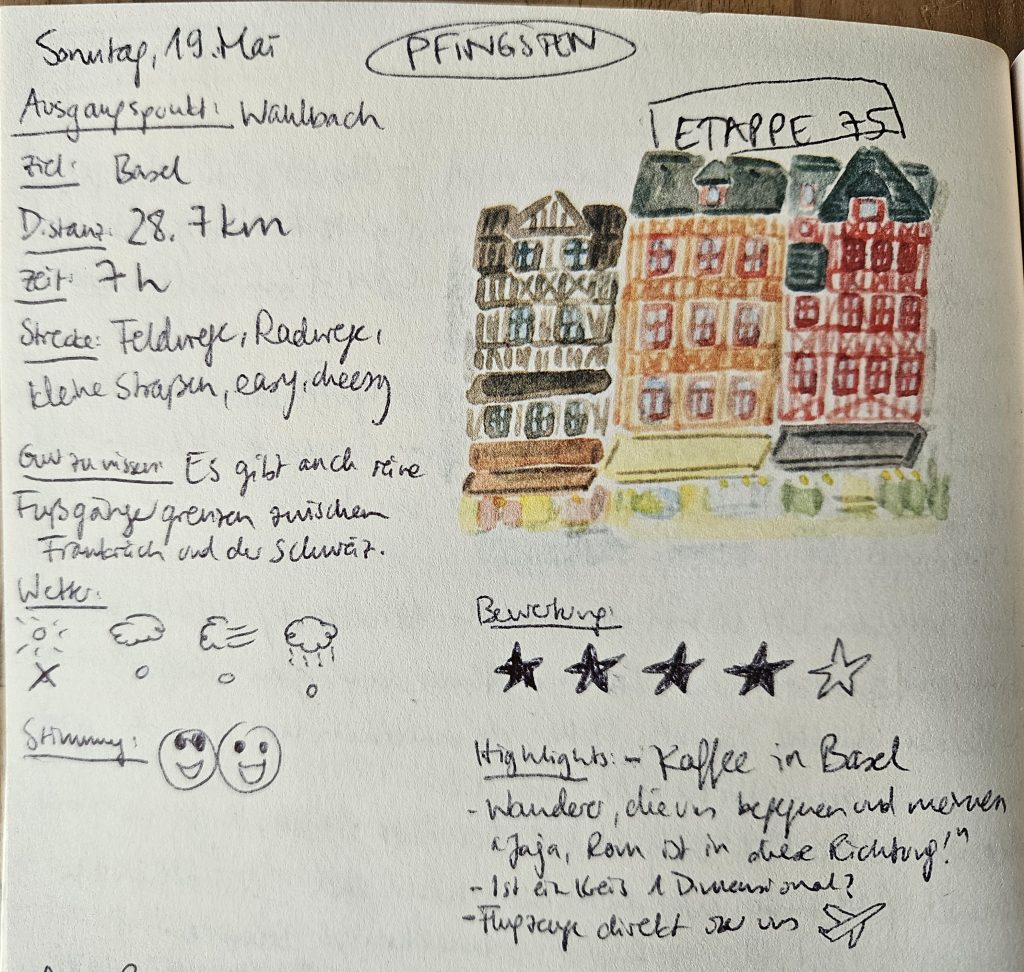 Sonntag, 19. Mai
PFINGSTEN
Ausgangspunkt: Wahlbach
ETAPPE 75
Ziel: Basel
Distanz: 28.7km
Zeit: 7h
Strecke: Feldwege, Radwege,
kleine Straßen, easy, cheesy
Gut zu wissen: Es gibt auch reine
Fußgängergrenzen zwischen
Frankreich und der Schweiz.
Wetter:
Stimmung:
Bewertung:
Highlights: - Kaffee in Basel
- Wanderer, die uns begegnen und meinen
"Jaja, Rom ist in diese Richtung!"
- Ist ein Kreis 1 Dimensional?
- Flugzeuge direkt über uns